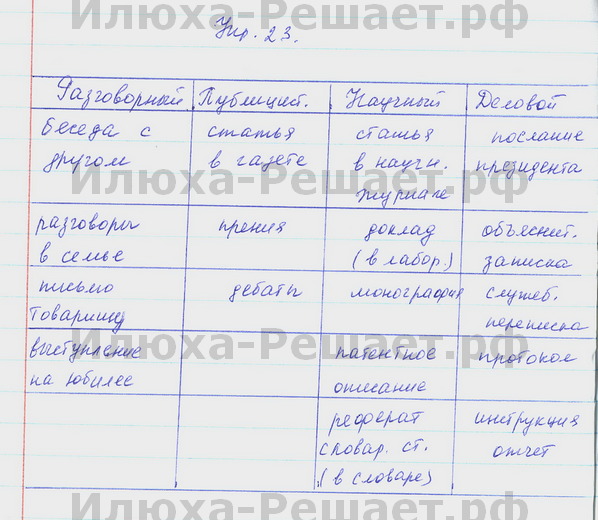 Илюха-Решает.рф
Упр. 23.
Разговорный Публицист. Научный Деловой
беседа с статья статья послание
другом в газете в научн. президента
Илюха-Решает.рф
журнале
разговоры прения доклад объяснит.
в семье (в лабор.) записка
письмо дебаты монография служеб.
товарищу переписка
Илюха-Решает.рф
выступление патентное протокол
на юбилее описание
реферат инструкция
словар. ст. отчет
(в словаре)
Илюха-Решает.рф